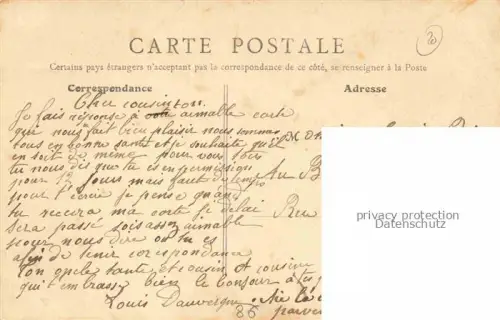 20
CARTE POSTALE
Certains pays étrangers n'acceptant pas la correspondance de ce côté, se renseigner à la Poste
Correspondance
Adresse
Cher cousin
Je fais réponse à votre aimable carte
que nous fait bien plaisir nous sommes
tous en bonne santé et je souhaite qu'il
en soit de même pour vous tous
tu nous dis que tu es en permission
pour 12 jours mais faut du temps
pour l'écrire je pense quand
tu recevra ma carte le délai
sera passé sois assez aimable
pour nous dire où tu es
afin de tenir correspondance
ton oncle tante et cousin et cousine
qui t'embrasse bien le bonjour à tes
Louis Dauvergne
M
Au B
Rue
privacy protection
Datenschutz
86